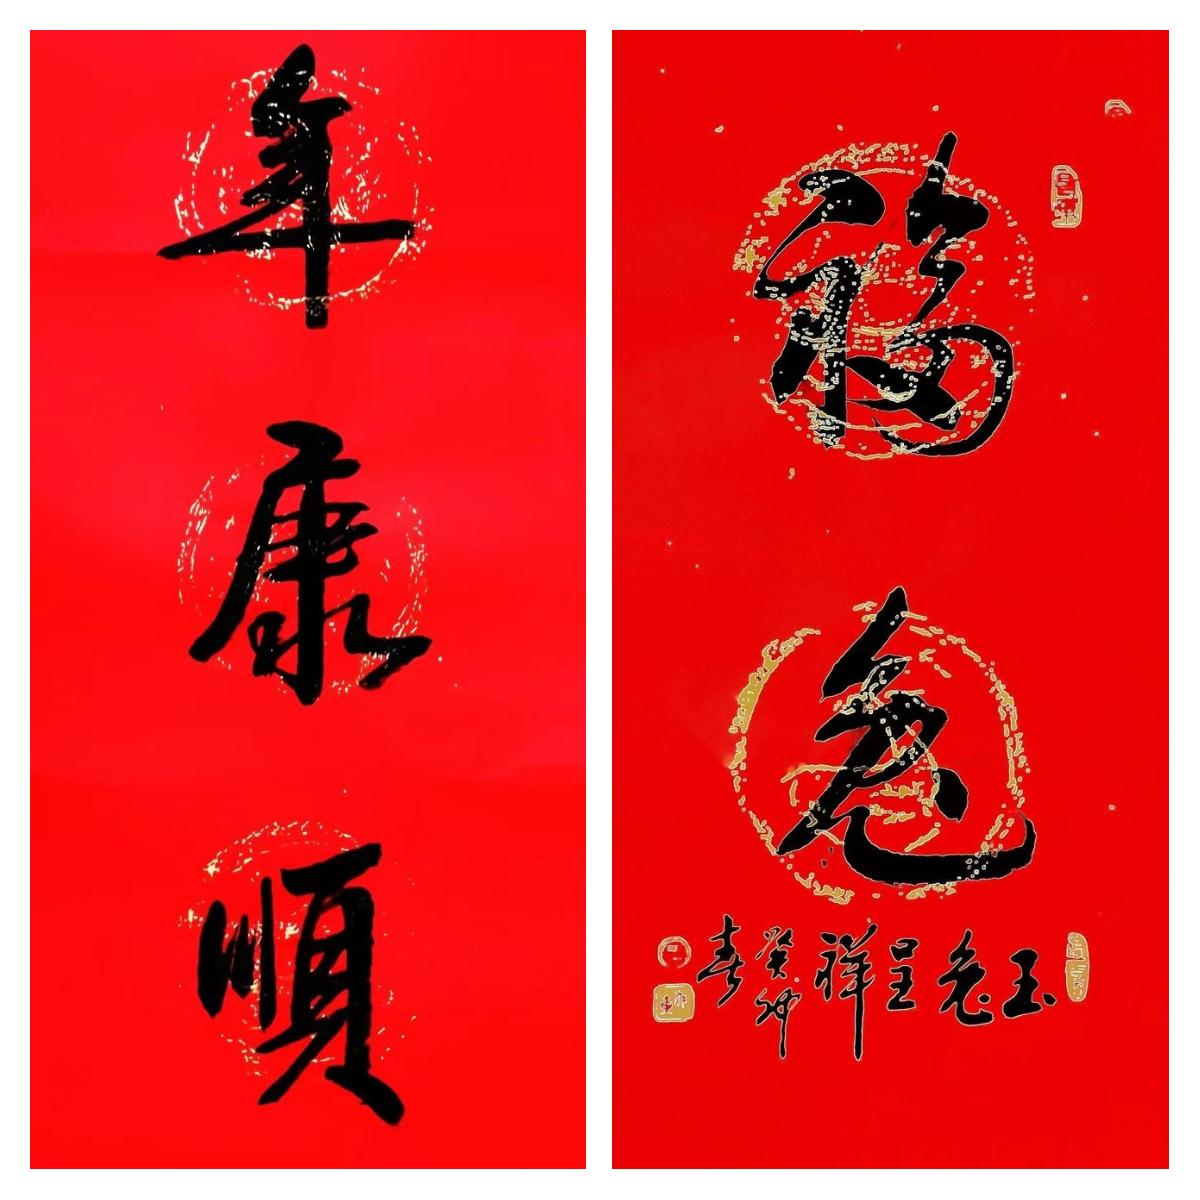 福兔
玉兔呈祥癸卯春
年康順